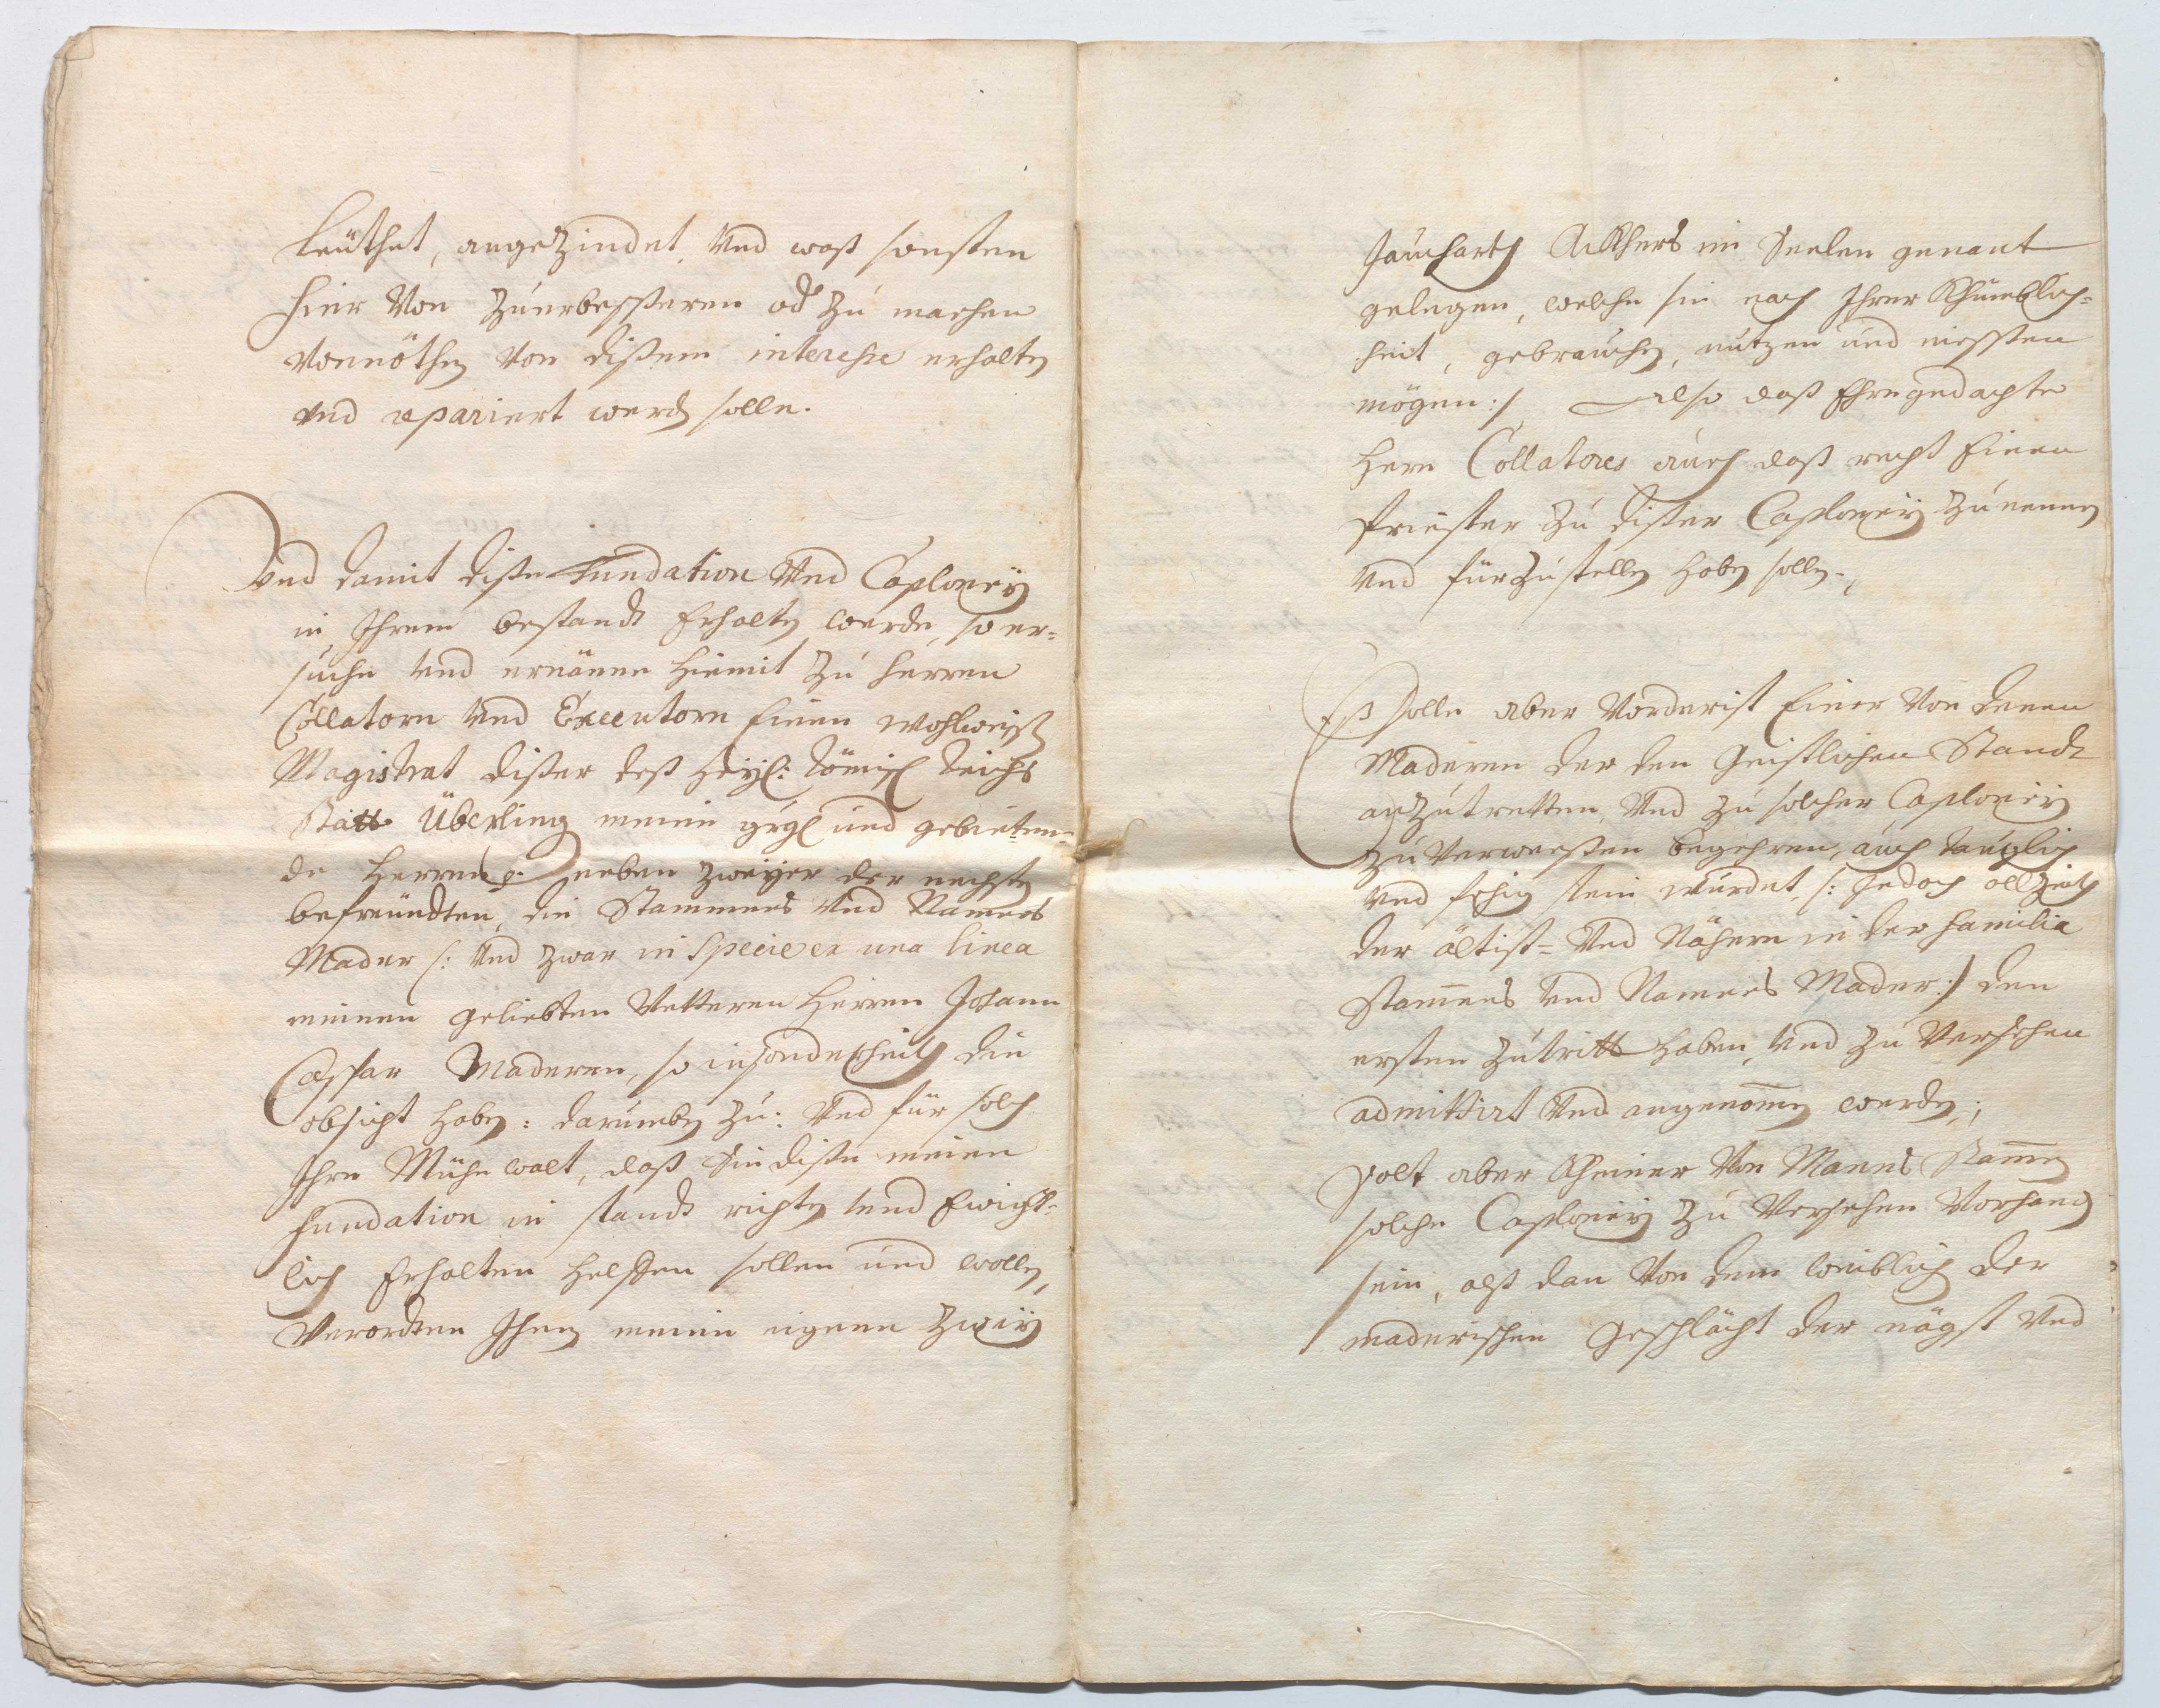 leüthet, angezindet, Vnd waß sonsten
hier Von zuerbesseren od zu machen
Vonnöthen Von dißem interesse erhalten
vnd repariert werd solle.
Vnd damit diße Fundation Vnd Caploneÿ
in Ihrem bestandt Erhalten werde, so er=
suche vnd ernänne hiemit zu herren
Collatorn vnd Executorn Einen wohlweisen
Magistrat dißer deß Heÿl: Römisch Reichs
Statt Überling meine gngl und gebieten=
de Herren p. neben zweÿer der nechsten
befreündten, die Stammens vnd Namens
Mader /: Vnd zwar in Specie ex una linea
meinen geliebten Vetteren Herren Johann
Caspar Maderen, so insonderheith die
obsicht haben: darumben zu: Vnd für solch
Ihre Mühewalt, daß Sie diße meine
Fundation in standt richten vnd Ewigk=
lich Erhalten helffen sollen und wollen,
Verordnen Ihnen meine eigene zweÿ
Jaucharth Ackhers im Seelen genant
gelegen, welche sie nach Ihrer Khumblich=
heit, gebrauchen, nutzen und niessen
mögen :/ Also daß Ehrngedachte
Herrn Collatores auch daß recht Einen
Priester zu dißer Caploneÿ zu nennen
Vnd fürzustellen haben sollen.
Eß solle aber Vorderist Einer Von denen
Maderen der den Geistlichen Standt
anzutretten, Vnd zu solcher Caploneÿ
zu Verweeßen begehren, auch tauglich
vnd fehig sein wurdet, /: Jedoch allzeith
der ältist= Vnd Nähere in der familia
Stammens vnd Namens Mader :/ den
ersten Zutritt haben, vnd zu Versehen
admittirt Vnd angenommen werden;
Solt aber Kheiner Von Manns Stamen
solche Caploneÿ zu Versehen Vorhand
sein, alß dan Von dem weiblich der
maderischen Geschlächt der nägst Vnd